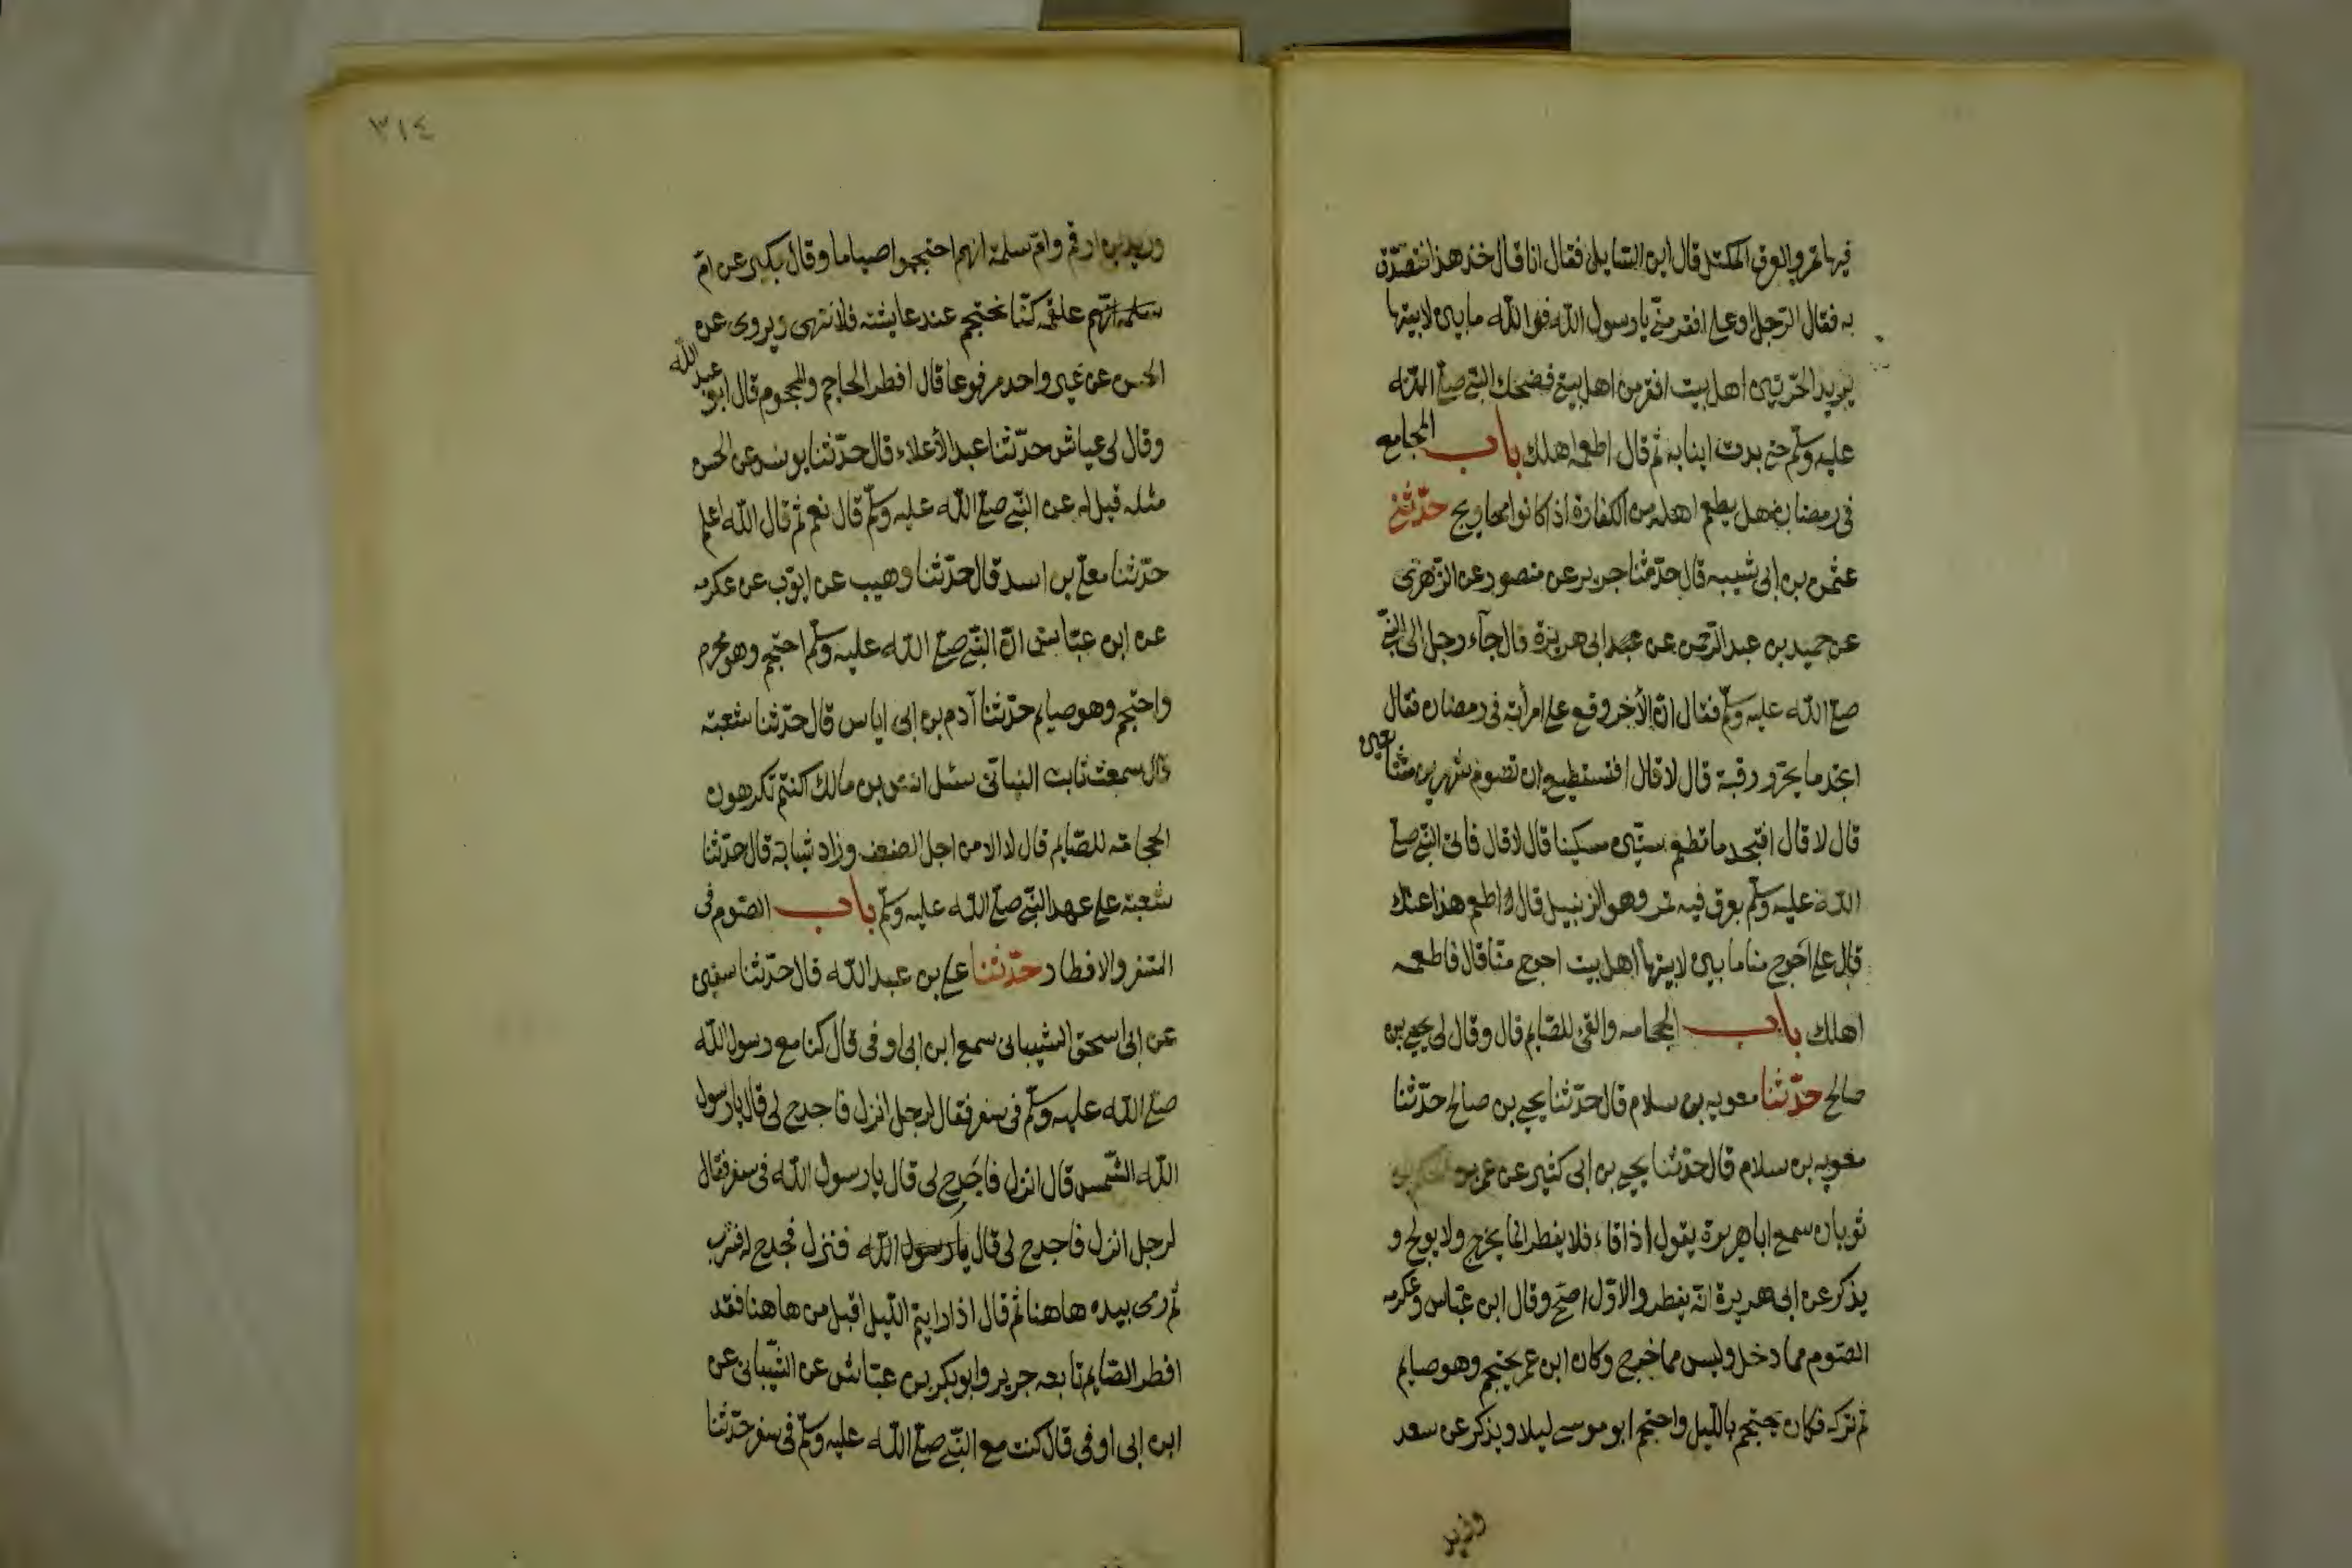 فيها تمر والعرق المكتل قال اين السّايل فقال انا قال خذ هذا فتصدّق
به فقال الرّجل اوعلى افقر منّي يا رسول اللّه فوالله ما بين لابيتها
يريد الحرّتين اهل بيت افقر من اهل بيتي فضحك النّبي صلّى اللّه
عليه وسلّم حتى بدت انيابه ثم قال اطعمه اهلك باب المجامع
في رمضان هل يطعم اهله من الكفارة اذا كانوا محاويج حدّثني
عثمن بن ابى شيبه قال حدّثنا جرير عن منصور عن الزّهرى
عن حميد بن عبد الرّحمن عن ابى هريرة قال جآء رجل الى النّبي
صلى اللّه عليه وسلّم فقال انّ الأخر وقع على امرأته في رمضان فقال
اتجد ما يحرّر رقبة قال لا قال افتستطيع ان تصوم شهرين متتابعين
قال لا قال افتجد ما تطعم ستّين مسكينا قال لا قال فاتى النّبي صلى
اللّه عليه وسلّم بعرق فيه تمر وهو الزنبيل قال اطعم هذا عنك
قال على احوج منا ما بين لابيتها اهل بيت احوج منّا قال فاطعمه
اهلك باب الحجامه والقئ للصّايم قال وقال لى يحيى بن
صالح حدّثنا معويه بن سلام قال حدّثنا يحيى بن صالح حدّثنا
معويه بن سلام قال حدّثنا يحيى بن ابى كثير عن عمر بن الحكم بن
ثوبان سمع ابا هريرة يقول اذا قاء فلا يفطر انما يخرج ولا يولج و
يذكر عن ابى هريرة انّه يفطر والاوّل اصحّ وقال ابن عبّاس وعكرمه
الصّوم مما دخل وليس مما خرج وكان ابن عمر يحتجم وهو صايم
ثم تركه فكان يحتجم بالّليل واحتجم ابو موسى ليلا ويذكر عن سعد
وزيد
٣١٤
وزيد بن ارقم وامّ سلمة انهم احتجموا صياما وقال بكير عن امّ
علقمه كنّا نحتجم عند عايشه فلا تنهى ويروى عن
الحسن عن غير واحد مرفوعا قال افطر الحاجم والمحجوم قال ابو عبد اللّه
وقال لى عياش حدّثنا عبد الأعلاء قال حدّثنا يونس عن الحسن
مثله قيل له عن النّبي صلّى اللّه عليه وسلّم قال نعم ثم قال اللّه اعلم
حدّثنا معلّى بن اسد قال حدّثنا وهيب عن ايّوب عن عكرمه
عن ابن عبّاس انّ النّبي صلّى اللّه عليه وسلّم احتجم وهو محرم
واحتجم وهو صايم حدّثنا آدم بن ابى اياس قال حدّثنا شعبة
قال سمعت ثابت البناتى سئل انس بن مالك اكنتم تكرهون
الحجامة للصّايم قال لا الا من اجل الضعف وزاد شبابة قال حدّثنا
شعبة على عهد النّبي صلّى اللّه عليه وسلّم باب الصّوم فى
السّفر والافطار حدّثنا على بن عبد اللّه قال حدّثنا سفين
عن ابى اسحق الشيبانى سمع ابن ابى اوفى قال كنا مع رسول اللّه
صلّى اللّه عليه وسلّم فى سفر فقال لرجل انزل فاجدح لى قال يا رسول
اللّه الشّمس قال انزل فاجدح لى قال يا رسول اللّه فى سفر فقال
لرجل انزل فاجدح لى قال يا رسول اللّه فنزل فجدح له فشرب
ثم رمى بيده هاهنا ثم قال اذا رايتم الّليل اقبل من هاهنا فقد
افطر الصّايم تابعه جرير وابو بكر بن عيّاش عن الشّيبانى عن
ابن ابى اوفى قال كنت مع النّبي صلّى اللّه عليه وسلّم فى سفر حدّثنا